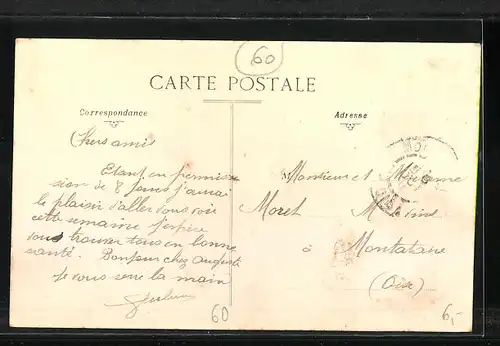 60
CARTE POSTALE
Correspondance
Adresse
Chers amis
Etant en permis
sion de 8 Jours j'aurai
le plaisir d'aller vous voir
cette semaine j'espère
vous trouver tous en bonne
santé. Bonjour chez Auguste
Je vous serre la main
Monsieur et Madame
Moret
à Montataire
(Oise)
60
6,-